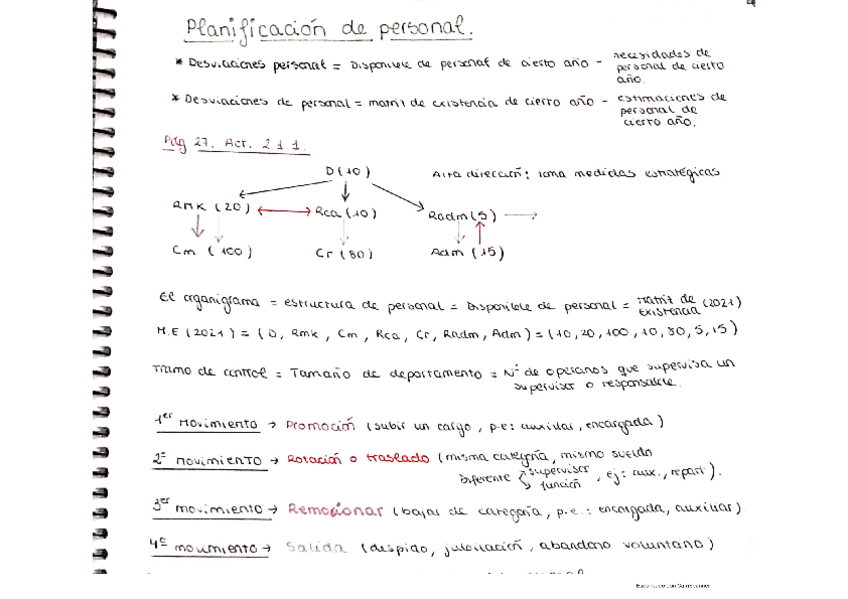 Planificación de personal.
* Desviaciones personal = Disponible de personal de cierto año - necesidades de personal de cierto año.
* Desviaciones de personal = matriz de existencia de cierto año - estimaciones de personal de cierto año.
Pág 27. Act. 2 1 1.
D (10) Alta dirección: toma medidas estratégicas
Rmk (20) Rca (10) Radm (5)
Cm (100) Cr (80) Adm (15)
El organigrama = estructura de personal = Disponible de personal = Matriz de existencia (2021)
M.E (2021) = (D, Rmk, Cm, Rca, Cr, Radm, Adm) = (10, 20, 100, 10, 80, 5, 15)
Tramo de control = Tamaño de departamento = Nº de operarios que supervisa un supervisor o responsable.
1er Movimiento → Promoción (subir un cargo, p.e: auxiliar, encargada)
2º movimiento → Rotación o traslado (misma categoría, mismo sueldo
Diferente supervisor función, ej: aux., repart).
3er movimiento → Remocionar (bajar de categoría, p.e.: encargada, auxiliar)
4º movimiento → Salida (despido, jubilación, abandono voluntario)